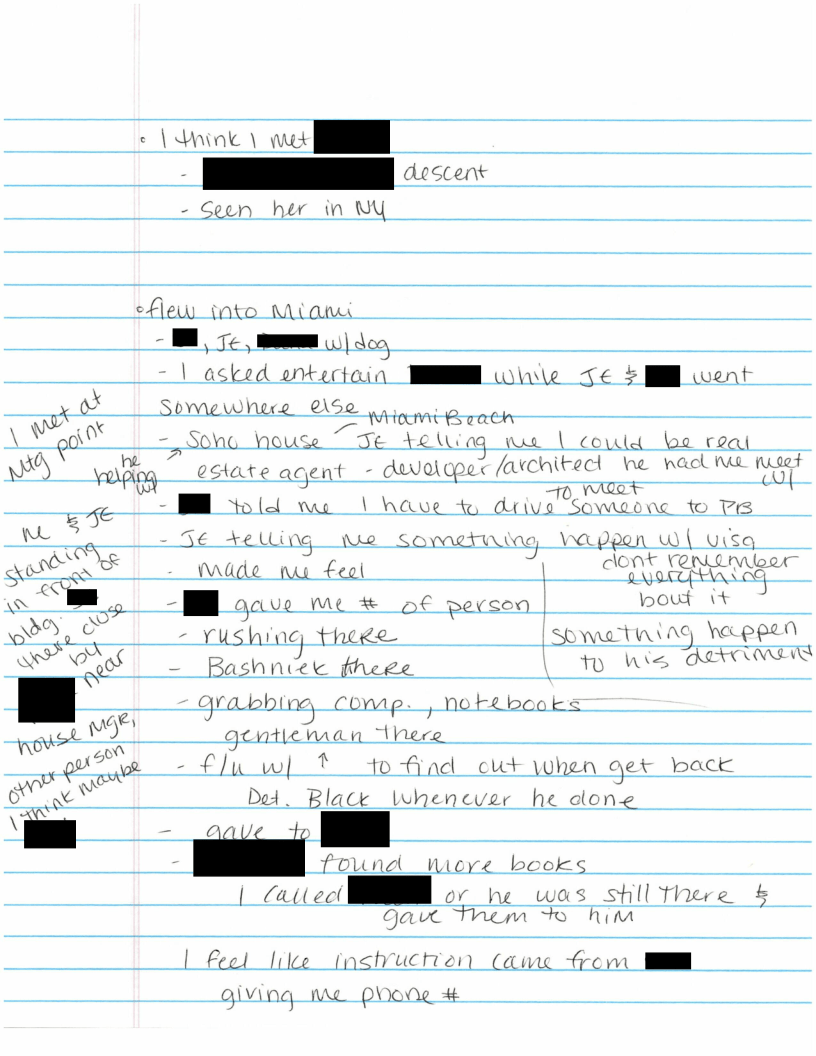 • I think I met
- descent
- seen her in NY
• flew into Miami
- , JE, w/dog
- I asked entertain while JE & went
somewhere else
Miami Beach
- Soho house JE telling me I could be real
he helping w/
estate agent - developer/architect he had me meet w/
- told me I have to drive to meet someone to PB
- JE telling me something happen w/ visa
dont remember
everything
bout it
something happen
to his detriment
- made me feel
- gave me # of person
- rushing there
- Bashniek there
- grabbing comp., notebooks
gentleman there
- f/u w/ ↑ to find out when get back
Det. Black whenever he done
- gave to
- found more books
I called or he was still there &
gave them to him
I feel like instruction came from
giving me phone #
I met at
Mtg point
me & JE
standing
in front of
bldg.
there close
by
near
house Mgr,
other person
I think maybe